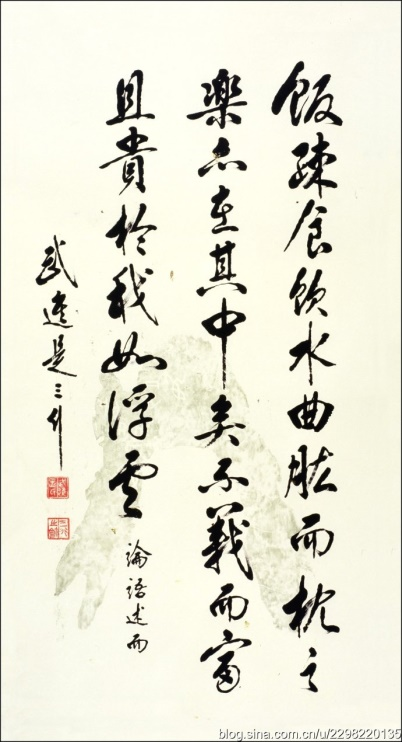 飯疎食飲水曲肱而枕之
楽亦在其中矣不義而富
且貴於我如浮雲
論語述而
blog.sina.com.cn/u/2298220135